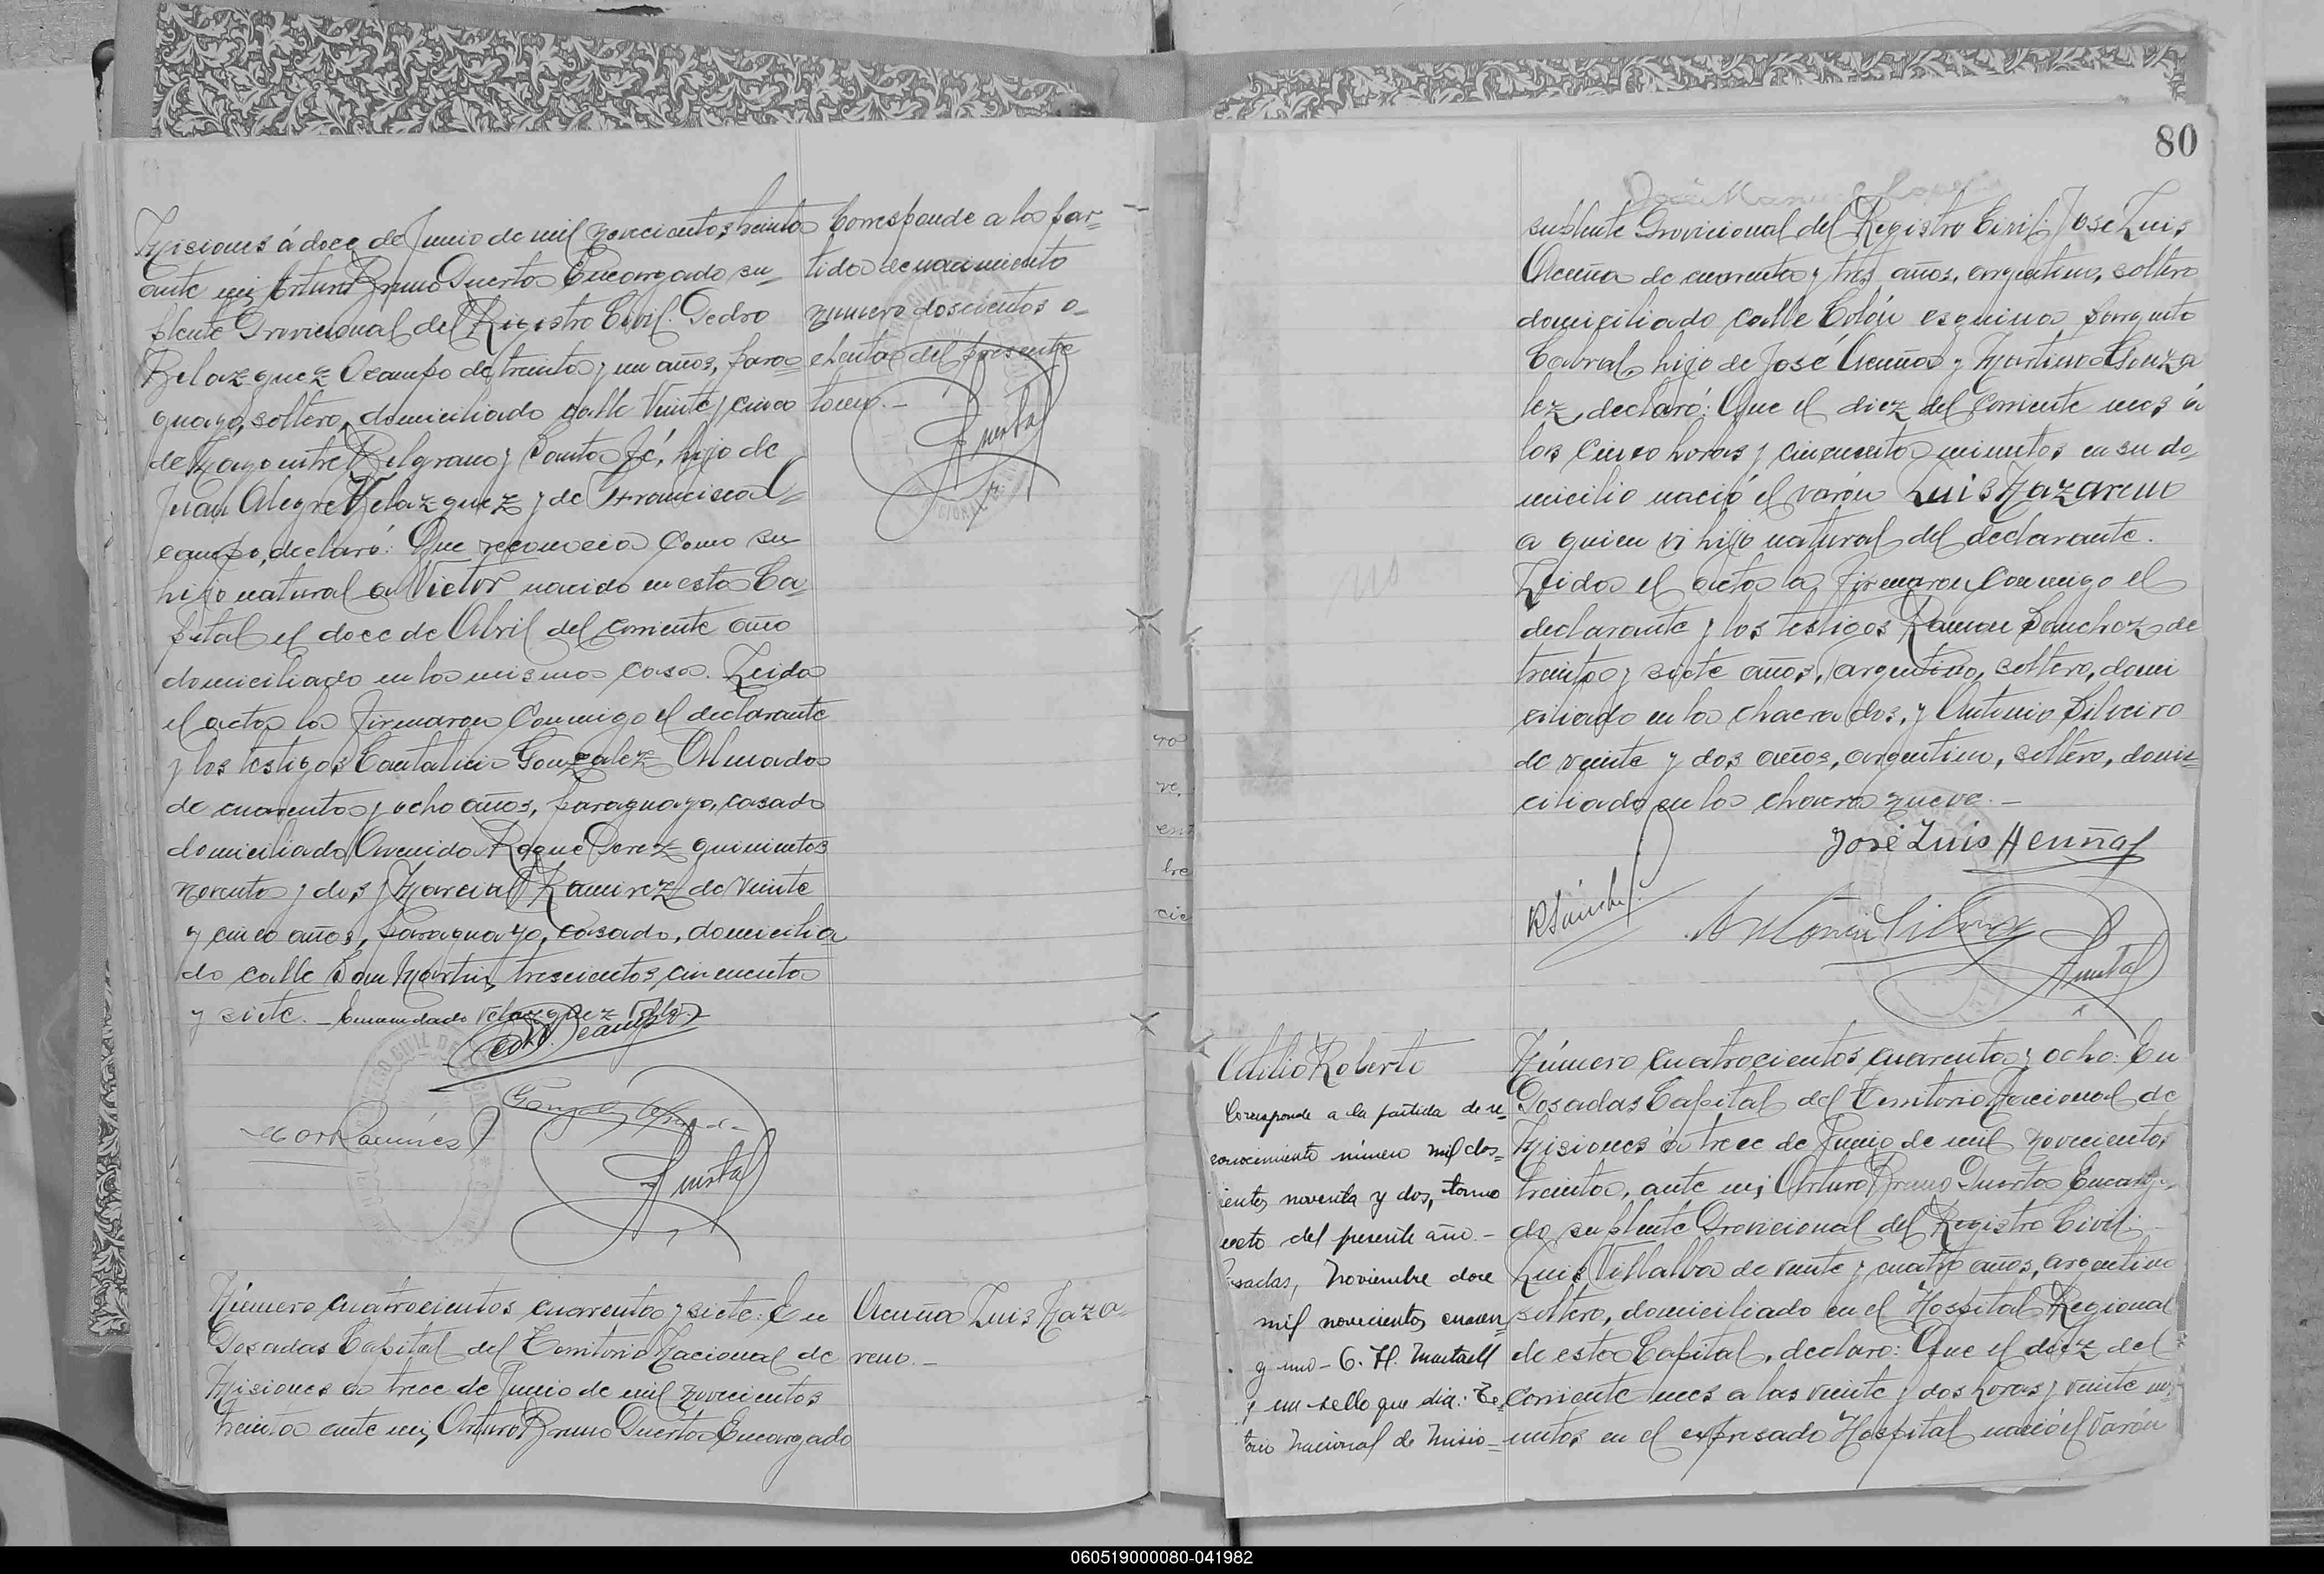 Misiones á doce de Junio de mil novecientos treinta
ante mi Arturo Bruno Puerta Encargado su-
plente Provicional del Registro Civil: Pedro
Belazquez Ocampo de treinta y un años, para-
guayo, soltero, domiciliado calle Veinte y cinco
de Mayo entre Belgrano y Santa Fé, hijo de
Juan Alegre Velazquez y de Francisca O-
campo, declaró: Que reconocia como su
hijo natural a Victor nacido en esta Ca-
pital el doce de Abril del corriente año
domiciliado en la misma casa. Leida
el acta la firmaron conmigo el declarante
y los testigos Cantalicia Gonzalez Almada
de cuarenta y ocho años, paraguayo, casado
domiciliado Avenida Roque Perez quinientos
noventa y dos, y Marcial Ramirez de veinte
y cinco años, paraguayo, casado, domicilia
do calle San Martin trescientos cincuenta
y siete. - Enmendado Velazquez Vale.
Ocampo
Gonzalez
Mar Ramires
Puerta
Corresponde a la par-
tida de nacimiento
numero doscientos o-
chenta del presente
tomo. -
Puerta
Número cuatrocientos cuarenta y siete: En
Posadas Capital del Territorio Nacional de
Misiones a trece de Junio de mil novecientos
treinta ante mi, Arturo Bruno Puerta Encargado
Acuña Luis Naza-
reno. -
80
José Manuel
suplente Provicional del Registro Civil: Jose Luis
Acuña de cuarenta y tres años, argentino, soltero
domiciliado calle Colón esquina Sargento
Cabral, hijo de José Acuña y Martina Gonza
lez, declaró: Que el diez del corriente mes á
las cinco horas y cincuenta minutos en su do-
micilio nació el varón Luis Nazareno
a quien vi hijo natural del declarante.
Leida el acta la firmaron conmigo el
declarante y los testigos Ramon Sanchez de
treinta y siete años, argentino, soltero, domi
ciliado en la chacra dos, y Antonio Silveiro
de veinte y dos años, argentino, soltero, domi-
ciliado en la chacra nueve. -
José Luis Acuña
R Sánchez
Antonio Silveiro
Puerta
Atilio Roberto
Corresponde a la partida de re-
conocimiento número mil dos-
cientos noventa y dos, tomo
del presente año. -
Posadas, Noviembre doce
mil novecientos cuaren-
y uno - C. H. Martaell
y un sello que dia: Te-
torio Nacional de Misio-
Número cuatrocientos cuarenta y ocho: En
Posadas Capital del Territorio Nacional de
Misiones á trece de Junio de mil novecientos
treinta, ante mi, Arturo Bruno Puerta Encarga-
do suplente Provicional del Registro Civil:
Luis Villalba de veinte y cuatro años, argentino
soltero, domiciliado en el Hospital Regional
de esta Capital, declaro: Que el diez del
corriente mes a las veinte y dos horas y veinte mi-
nutos en el expresado Hospital nació el Varón
060519000080-041982